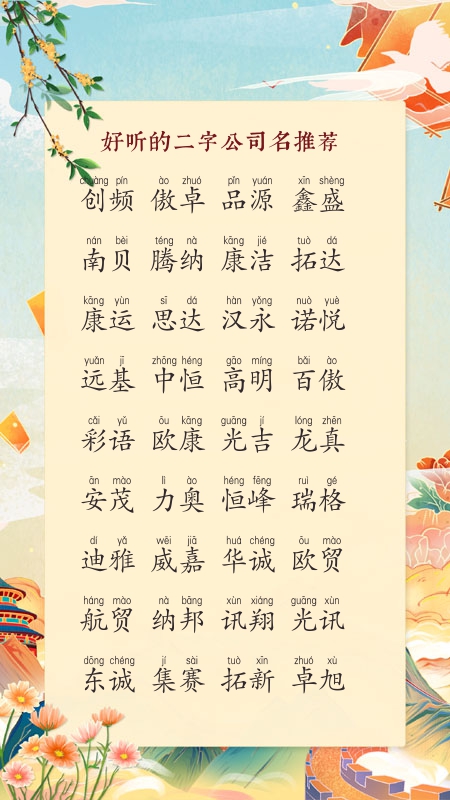 好听的二字公司名推荐
chuàng pín ào zhuó pǐn yuán xīn shèng
创频 傲卓 品源 鑫盛
nán bèi téng nà kāng jié tuò dá
南贝 腾纳 康洁 拓达
kāng yùn sī dá hàn yǒng nuò yuè
康运 思达 汉永 诺悦
yuǎn jī zhōng héng gāo míng bǎi ào
远基 中恒 高明 百傲
cǎi yǔ ōu kāng guāng jí lóng zhēn
彩语 欧康 光吉 龙真
ān mào lì ào héng fēng ruì gé
安茂 力奥 恒峰 瑞格
dí yǎ wēi jiā huá chéng ōu mào
迪雅 威嘉 华诚 欧贸
háng mào nà bāng xùn xiáng guāng xùn
航贸 纳邦 讯翔 光讯
dōng chéng jí sài tuò xīn zhuó xù
东诚 集赛 拓新 卓旭